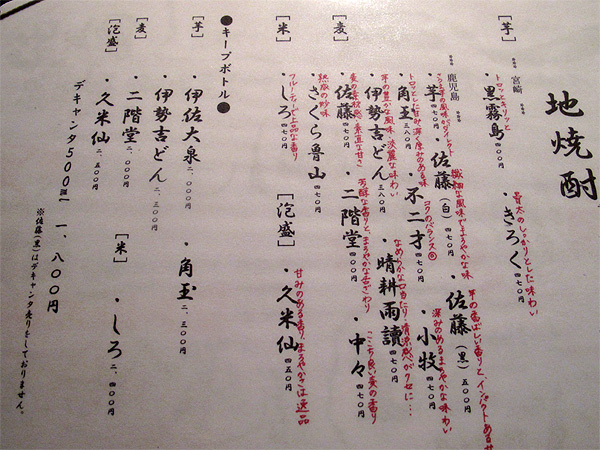 地焼酎
[芋]
*** 宮崎 ***
トロッとキリッと
・黒霧島 四〇〇円
骨太のしっかりとした味わい
・きろく 四七〇円
*** 鹿児島 ***
・芋 四七〇円
繊細な風味でまろやかな味
・佐藤(白) 四七〇円
芋の香ばしい香りと、インパクトある
・佐藤(黒) 五〇〇円
トロッとした甘み深く厚みのある味
・角玉 三八〇円
コクのバランス◎
・不二才 四七〇円
深みのあるまろやかな味わい
・小牧 四七〇円
芋の豊かな風味・淡麗な味わい
・伊勢吉どん 三八〇円
なめらかな口当たり・清涼感がクセに…
・晴耕雨讀 四七〇円
[麦]
麦の香ばしさ 素直な甘さ
・佐藤 四七〇円
芳醇な香りと、まろやかな舌ざわり
・二階堂 四〇〇円
ここち良い麦の香り
・中々 四七〇円
熟成の妙味
・さくら魯山 四七〇円
[米]
フルーティーで上品な香り
・しろ 四七〇円
[泡盛]
甘みのある香り、まろやかさは逸品
・久米仙 四五〇円
●キープボトル●
[芋]
・伊佐大泉 二、〇〇〇円
・角玉 二、三〇〇円
・伊勢吉どん 二、三〇〇円
[麦]
・二階堂 二、〇〇〇円
[米]
・しろ 二、四〇〇円
[泡盛]
・久米仙 二、五〇〇円
デキャンタ500㎖ 一、八〇〇円
※佐藤(黒)はデキャンタ売りをしておりません。